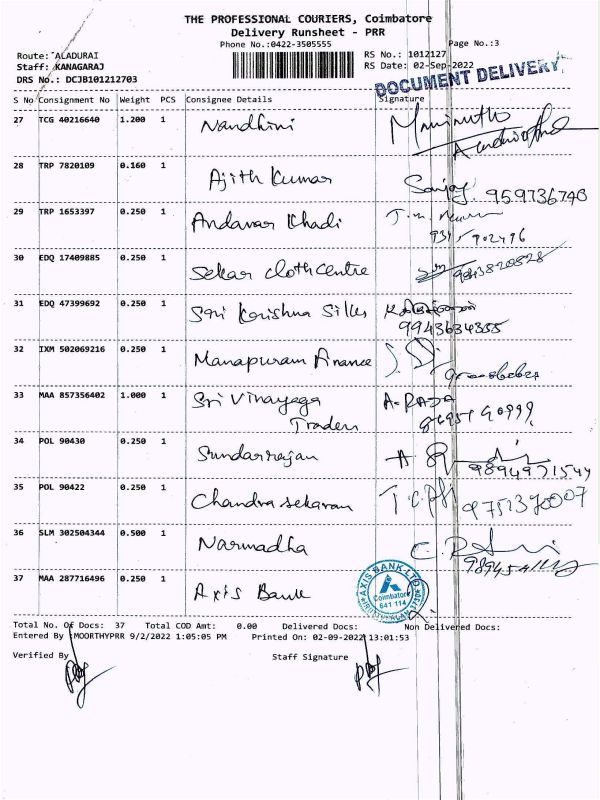 THE PROFESSIONAL COURIERS, Coimbatore
Delivery Runsheet - PRR
Phone No.:0422-3505555
Page No.:3
Route: ALADURAI
RS No.: 1012127
Staff: KANAGARAJ
RS Date: 02-Sep-2022
DRS No.: DCJB101212703
DOCUMENT DELIVERY
S No Consignment No Weight PCS Consignee Details Signature
27 TCG 40216640 1.200 1 Nandhini
28 TRP 7820109 0.160 1 Ajith Kumar Sanjay 959736740
29 TRP 1653397 0.250 1 Andavar Khadi
30 EDQ 17409885 0.250 1 Sekar cloth centre 9843820828
31 EDQ 47399692 0.250 1 Sri Krishna Silks
9943634355
32 IXM 502069216 0.250 1 Manapuram Finance
33 MAA 857356402 1.000 1 Sri Vinayaga A-RAJA
Traders
34 POL 90430 0.250 1 Sundarrajan
9894971544
35 POL 90422 0.250 1 Chandra sekaran 9751370007
36 SLM 302504344 0.500 1 Narmadha
37 MAA 287716496 0.250 1 Axis Bank
AXIS BANK LTD
Coimbatore
641 114
Total No. Of Docs: 37 Total COD Amt: 0.00 Delivered Docs: Non Delivered Docs:
Entered By :MOORTHYPRR 9/2/2022 1:05:05 PM Printed On: 02-09-2022 13:01:53
Verified By Staff Signature